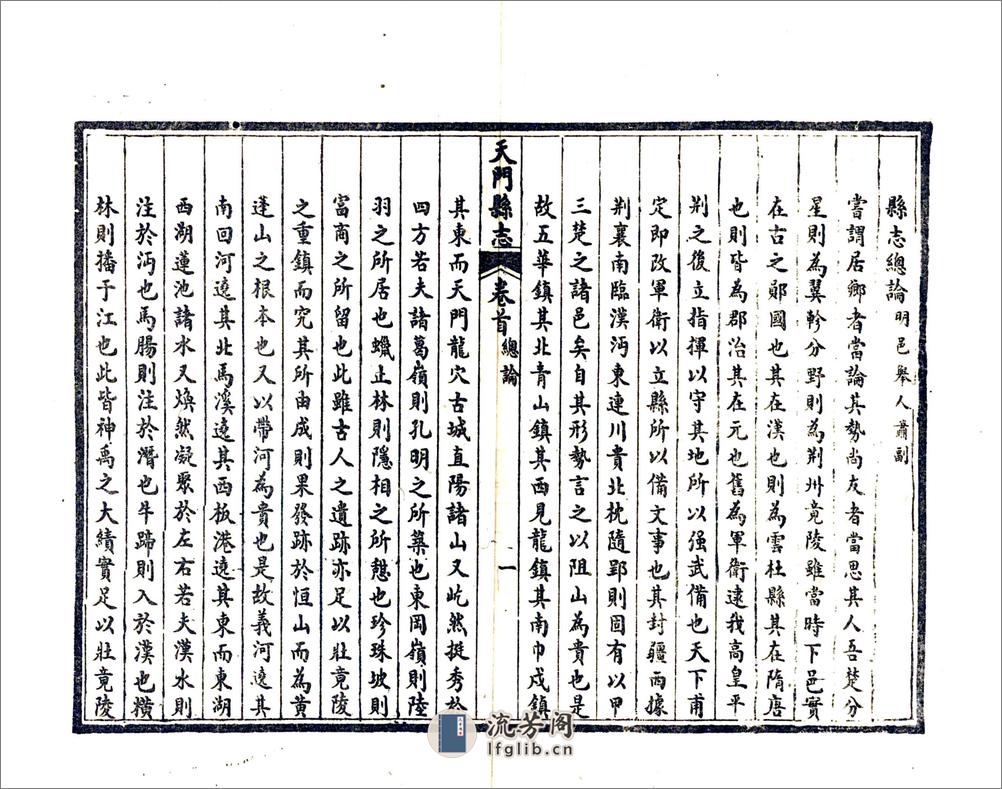 縣志總論明邑舉人蕭副
嘗謂居鄉者當論其勢尚友者當思其人吾楚分
星則為翼軫分野則為荆州竟陵雖當時下邑實
在古之鄖國也其在漢也則為雲杜縣其在隋唐
也則皆為郡治其在元也舊為軍衛逮我高皇平
荆之後立指揮以守其地所以强武備也天下甫
定即改軍衛以立縣所以備文事也其封疆西據
荆襄南臨漢沔東連川貴北枕隨郢則固有以甲
三楚之諸邑矣自其形勢言之以阻山為貴也是
故五華鎮其北青山鎮其西見龍鎮其南巾戍鎮
天門縣志 卷首 總論 一
其東而天門龍穴古城直陽諸山又屹然挺秀於
四方若夫諸葛嶺則孔明之所築也東岡嶺則陸
羽之所居也蠟止林則隱相之所憇也珍珠坡則
富商之所留也此雖古人之遺跡亦足以壯竟陵
之重鎮而究其所由成則果發跡於恒山而為黄
蓬山之根本也又以帶河為貴也是故義河遶其
南回河遶其北馬溪遶其西板港遶其東而東湖
西湖蓮池諸水又煥然凝聚於左右若夫漢水則
注於沔也馬腸則注於潛也牛蹄則入於漢也橫
林則播于江也此皆神禹之大績實足以壯竟陵
流芳阁
lfglib.cn